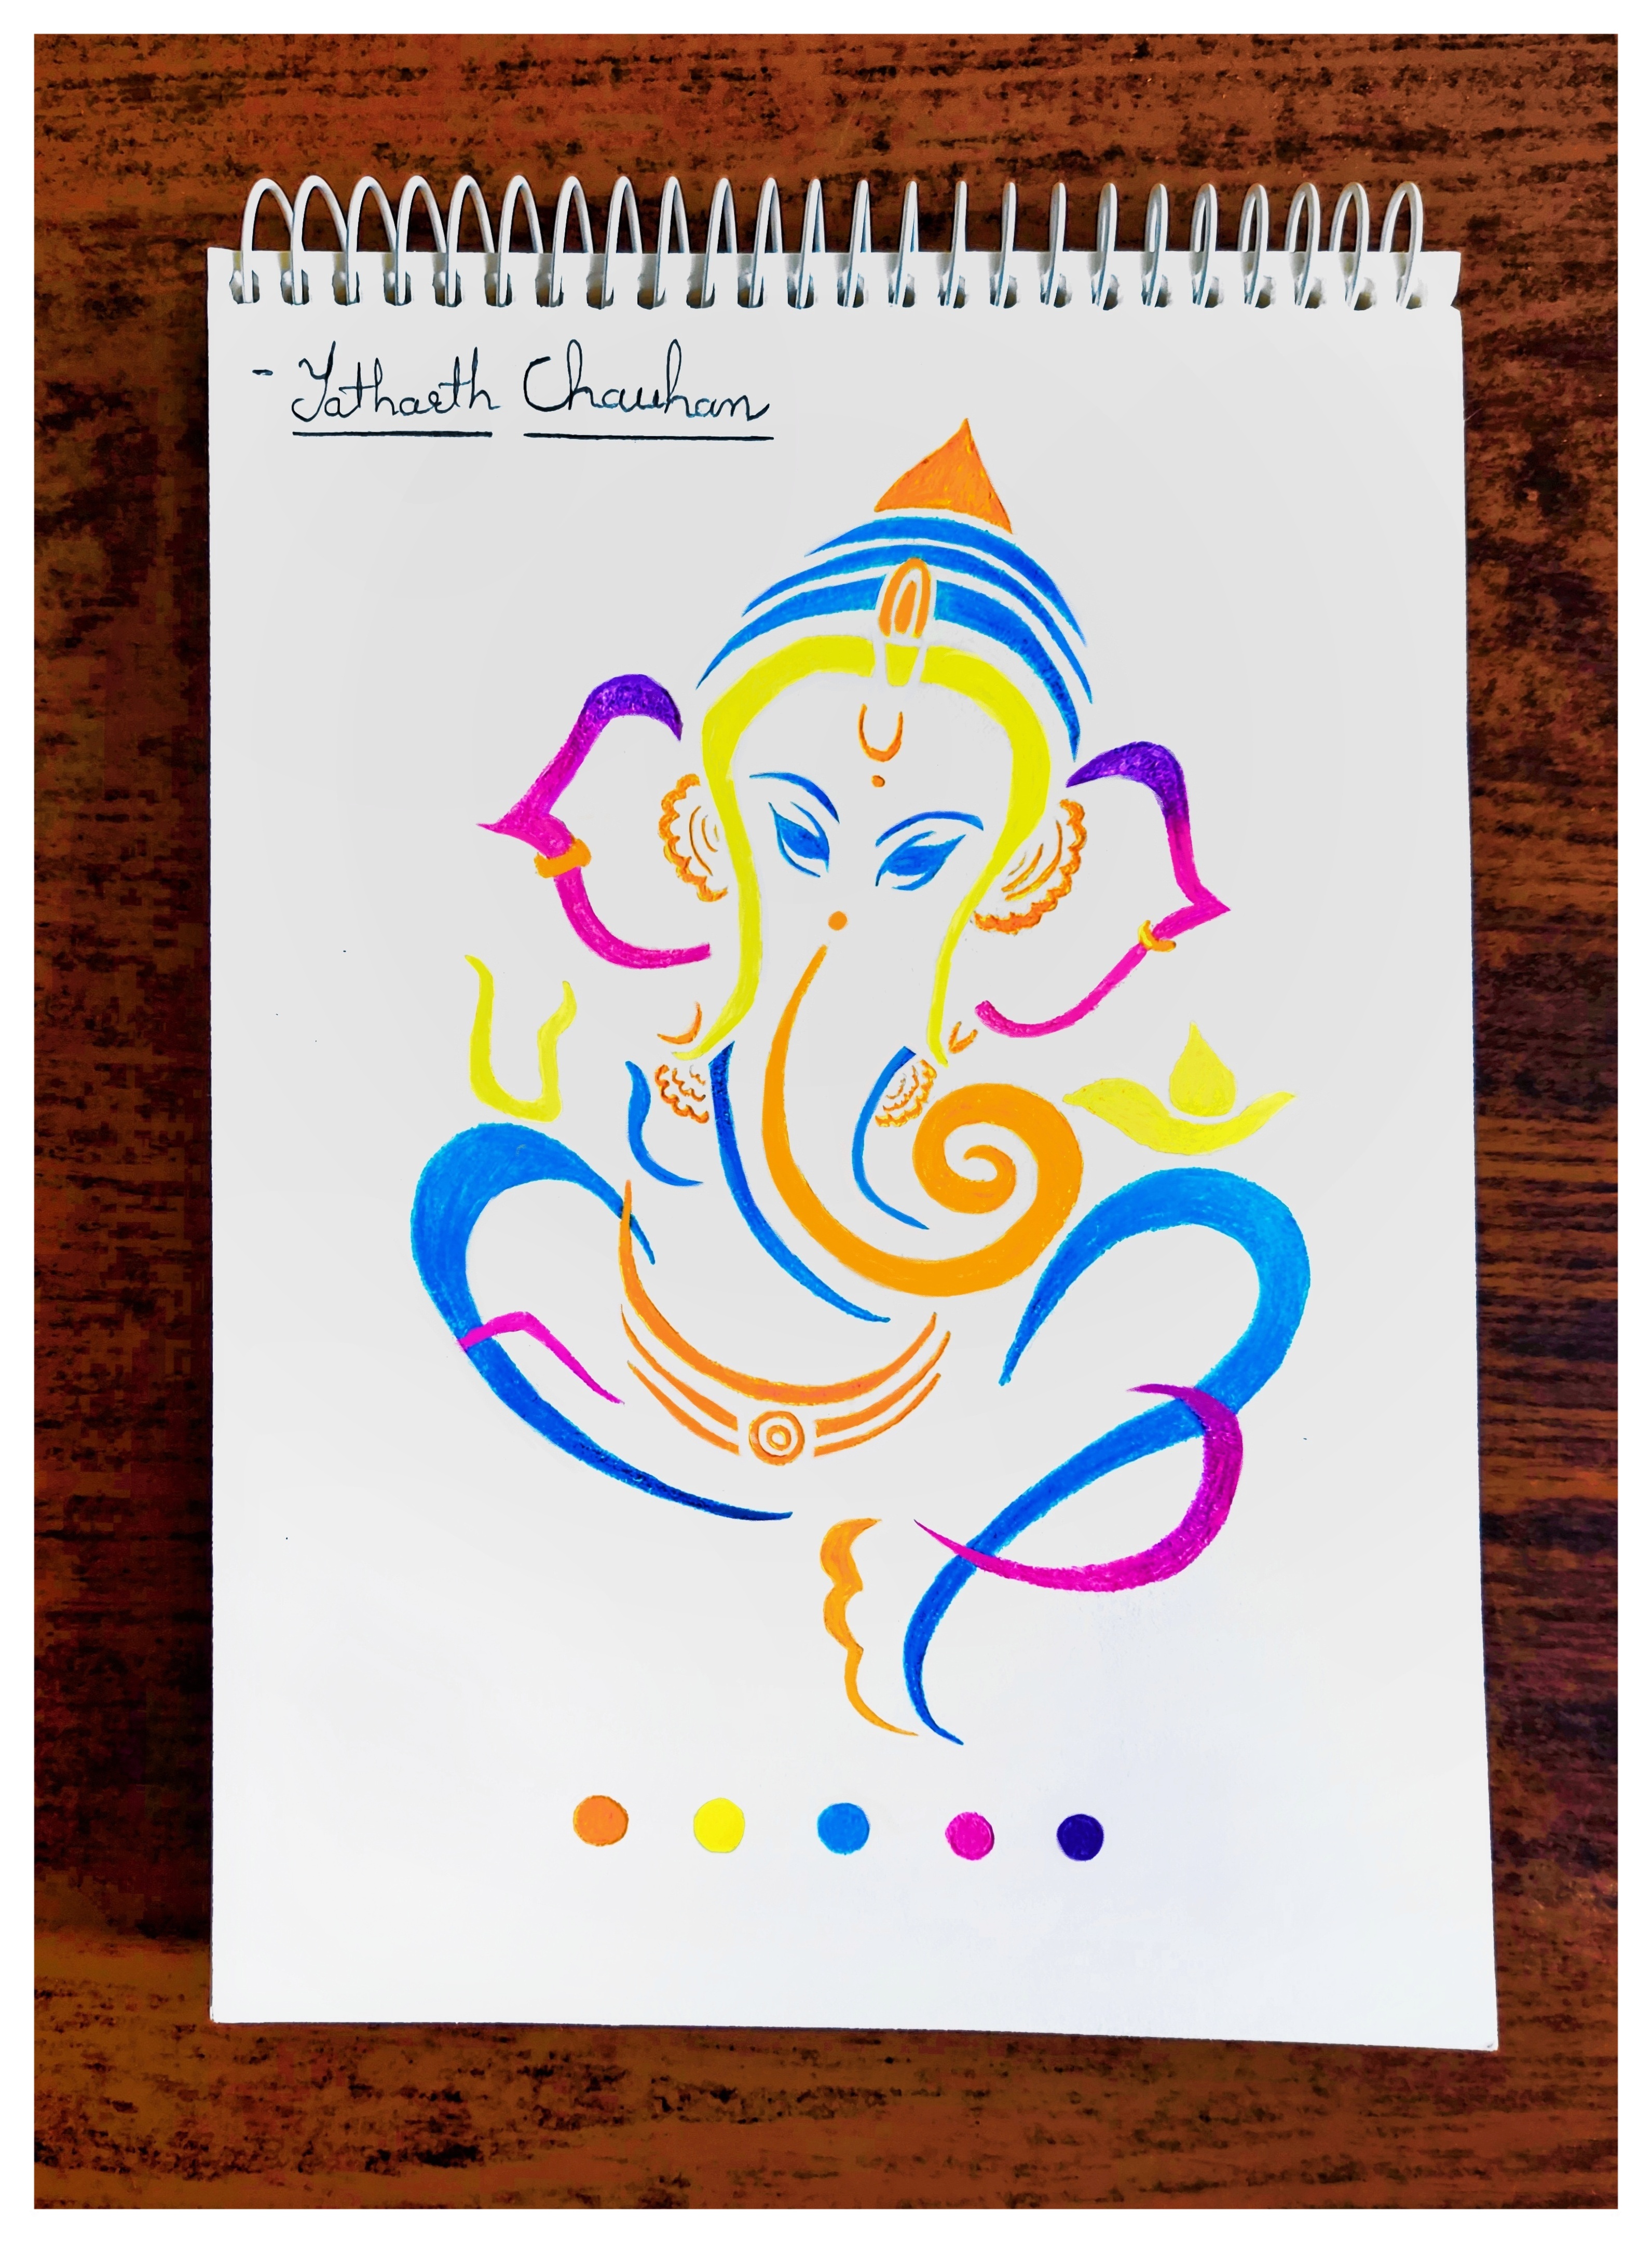 - Yatharth Chauhan